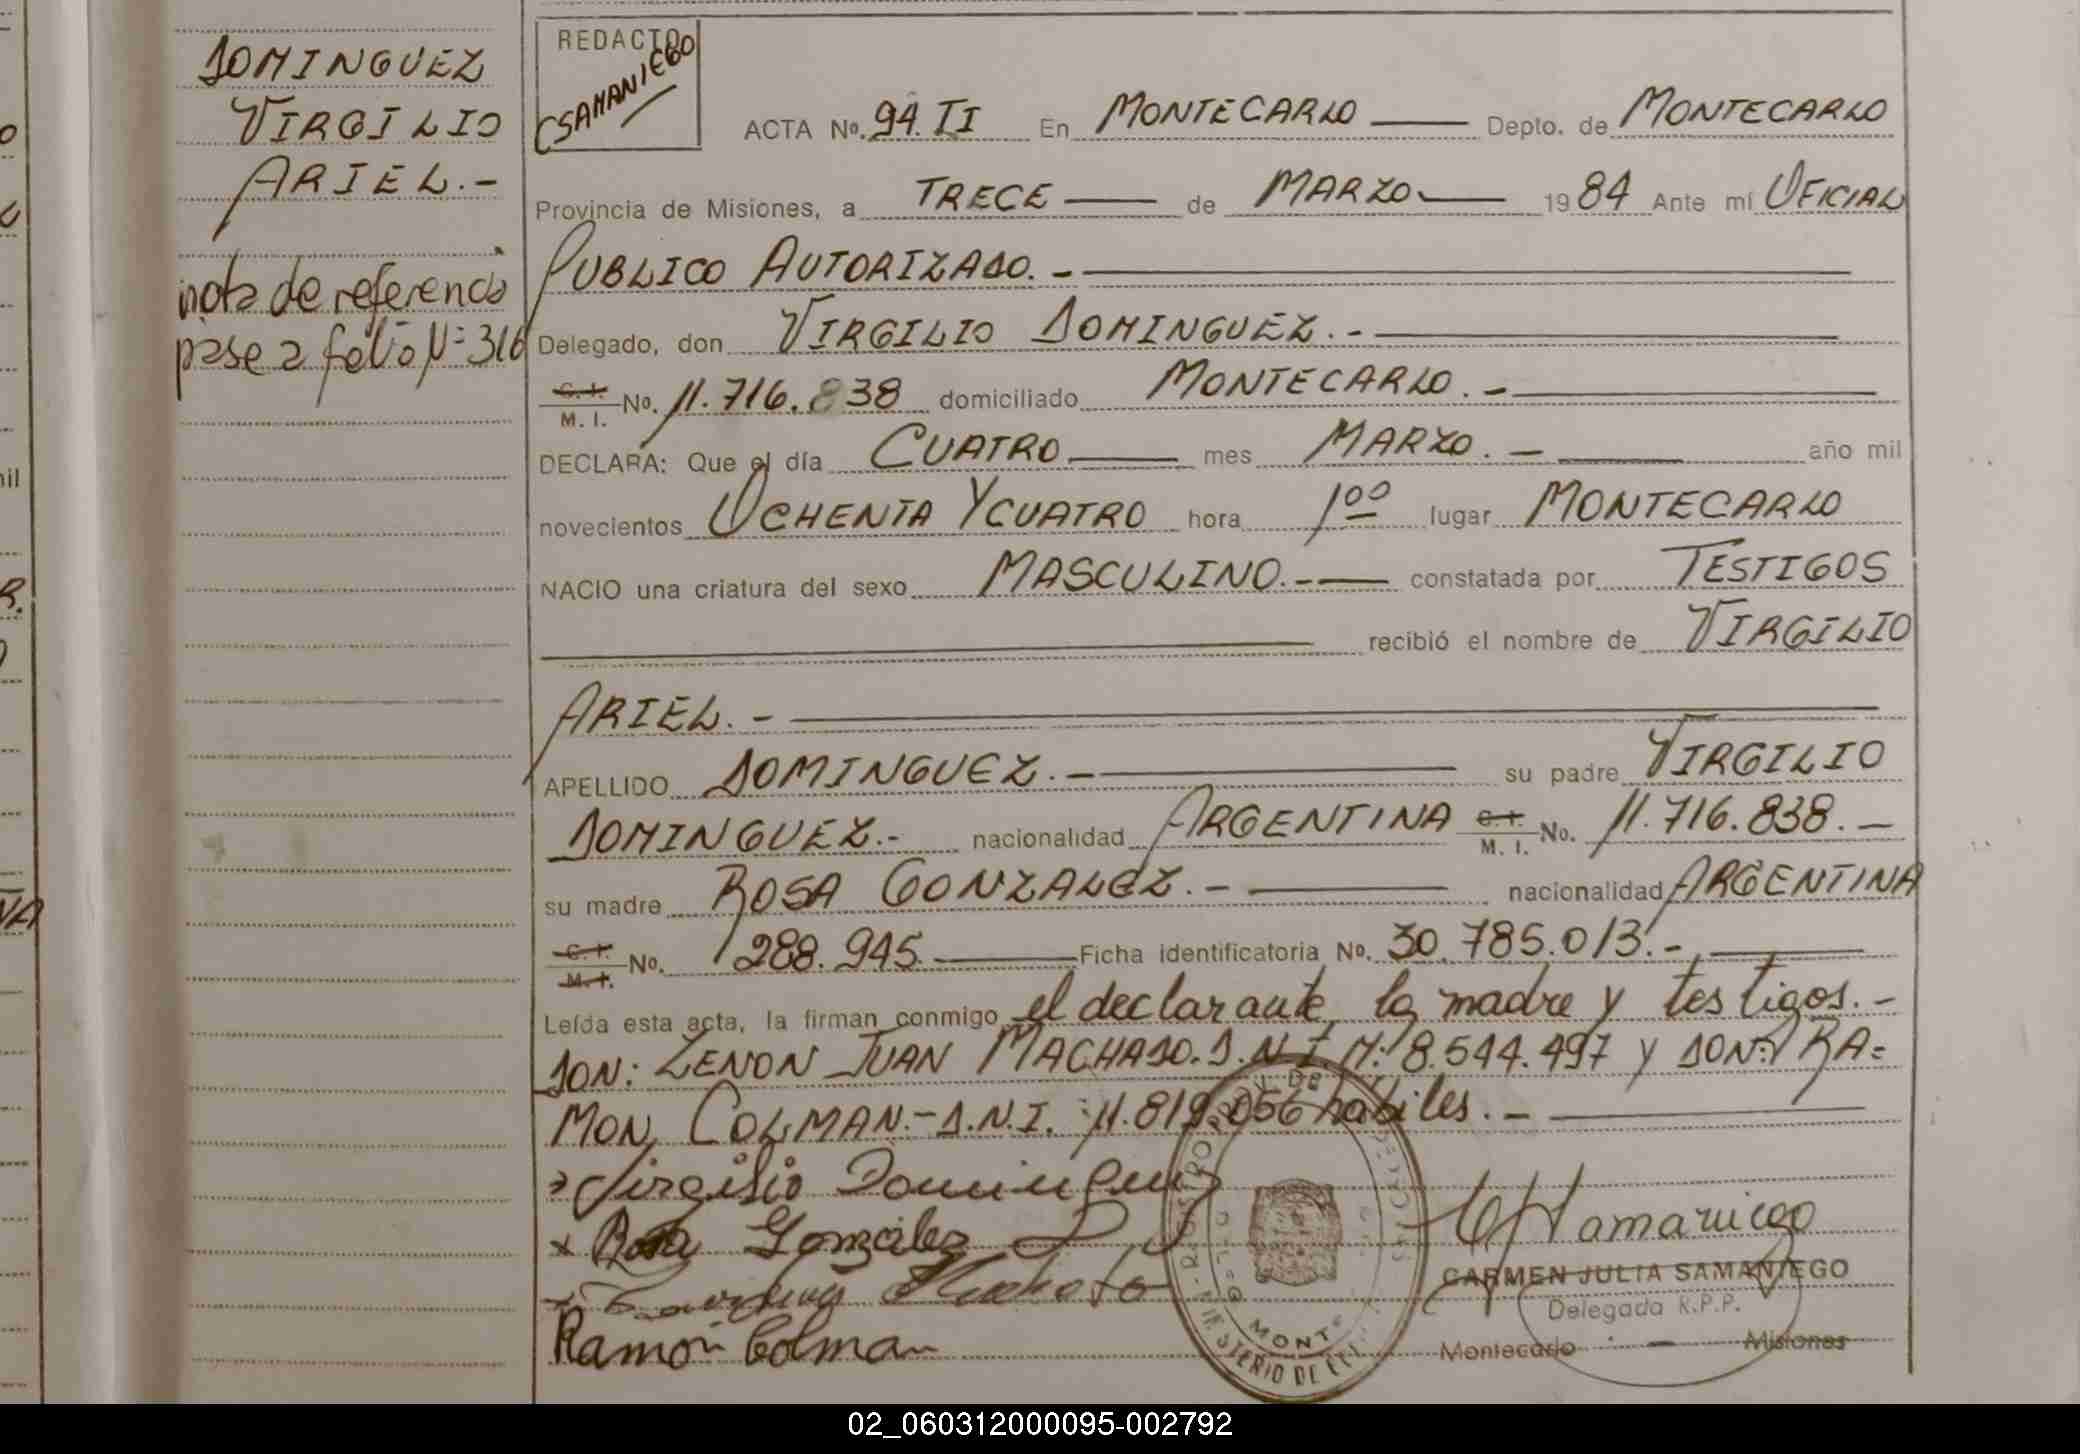 DOMINGUEZ
VIRGILIO
ARIEL.-
nota de referencia
pase a folio Nº 316
REDACTO
CSAMANIEGO
ACTA No. 94. TI En MONTECARLO Depto. de MONTECARLO
Provincia de Misiones, a TRECE de MARZO 1984 Ante mí OFICIAL
PUBLICO AUTORIZADO.-
Delegado, don VIRGILIO DOMINGUEZ.-
C. I. M. I. No. 11.716.838 domiciliado MONTECARLO.-
DECLARA: Que el día CUATRO mes MARZO.- año mil
novecientos OCHENTA Y CUATRO hora 1⁰⁰ lugar MONTECARLO
NACIO una criatura del sexo MASCULINO.- constatada por TESTIGOS
recibió el nombre de VIRGILIO
ARIEL.-
APELLIDO DOMINGUEZ.- su padre VIRGILIO
DOMINGUEZ.- nacionalidad ARGENTINA C. I. M. I. No. 11.716.838.-
su madre ROSA GONZALEZ.- nacionalidad ARGENTINA
C. I. M. I. No. 1288.945. Ficha identificatoria No. 30.785.013.-
Leída esta acta, la firman conmigo el declarante, la madre y testigos.-
DON: ZENON JUAN MACHADO. D.N.I. M: 8.544.497 y DON: RA=
MON COLMAN.- D.N.I.: 11.819.056 habiles.-
Virgilio Dominguez
x Rosa González
Ramón Colman
CARMEN JULIA SAMANIEGO
Delegada R.P.P.
Montecarlo - Misiones
MONTE
MINISTERIO DE
02_060312000095-002792